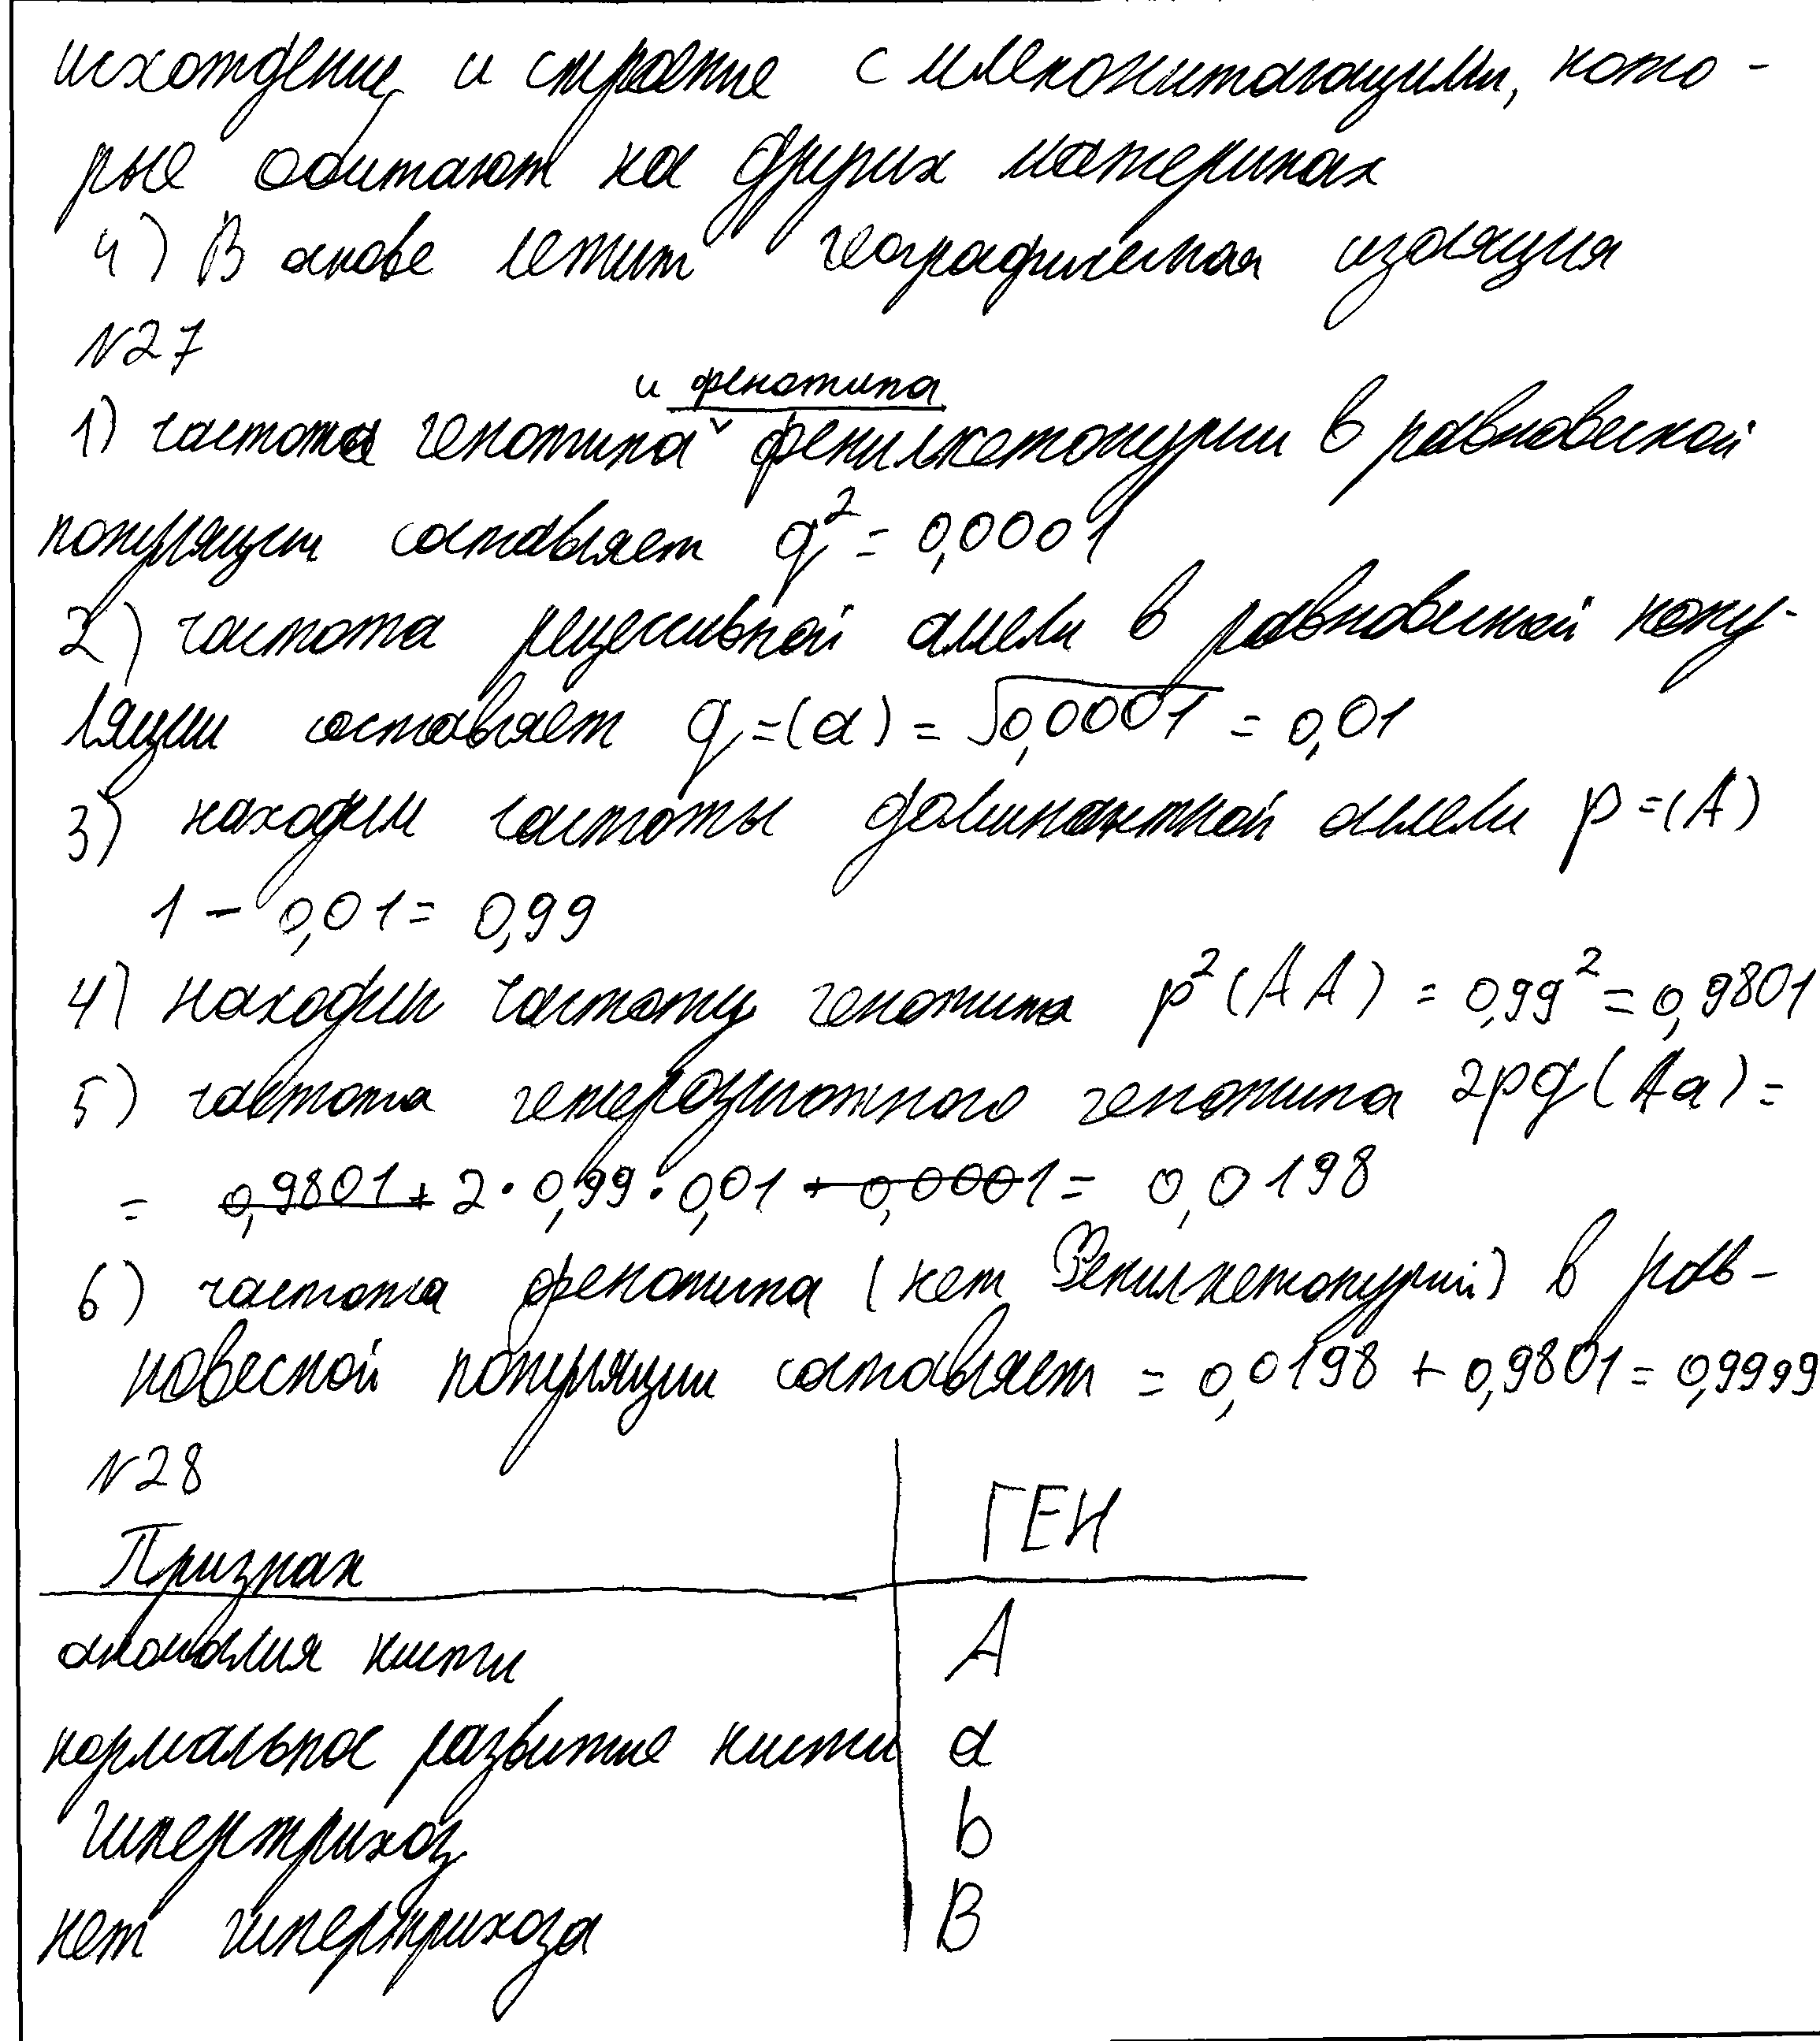 исхождение и строение с млекопитающими, кото-
рые обитают на других материках
4) В основе лежит географическая изоляция
№27
и фенотипа
1) частота генотипа фенилкетонурии в равновесной
популяции составляет q² = 0,0001
2) частота рецессивной аллели в равновесной попу-
ляции составляет q=(a) = √0,0001 = 0,01
3) находим частоты доминантной аллели p=(A)
1 - 0,01 = 0,99
4) находим частоту генотипа p²(AA) = 0,99² = 0,9801
5) частота гетерозиготного генотипа 2pq(Aa) =
= 0,9801 + 2·0,99·0,01 + 0,0001 = 0,0198
6) частота фенотипа (нет Фенилкетонурий) в рав-
новесной популяции составляет = 0,0198 + 0,9801 = 0,9999
№28
Признак ГЕН
аномалия кисти A
нормальное развитие кисти a
гипертрихоз b
нет гипертрихоза B